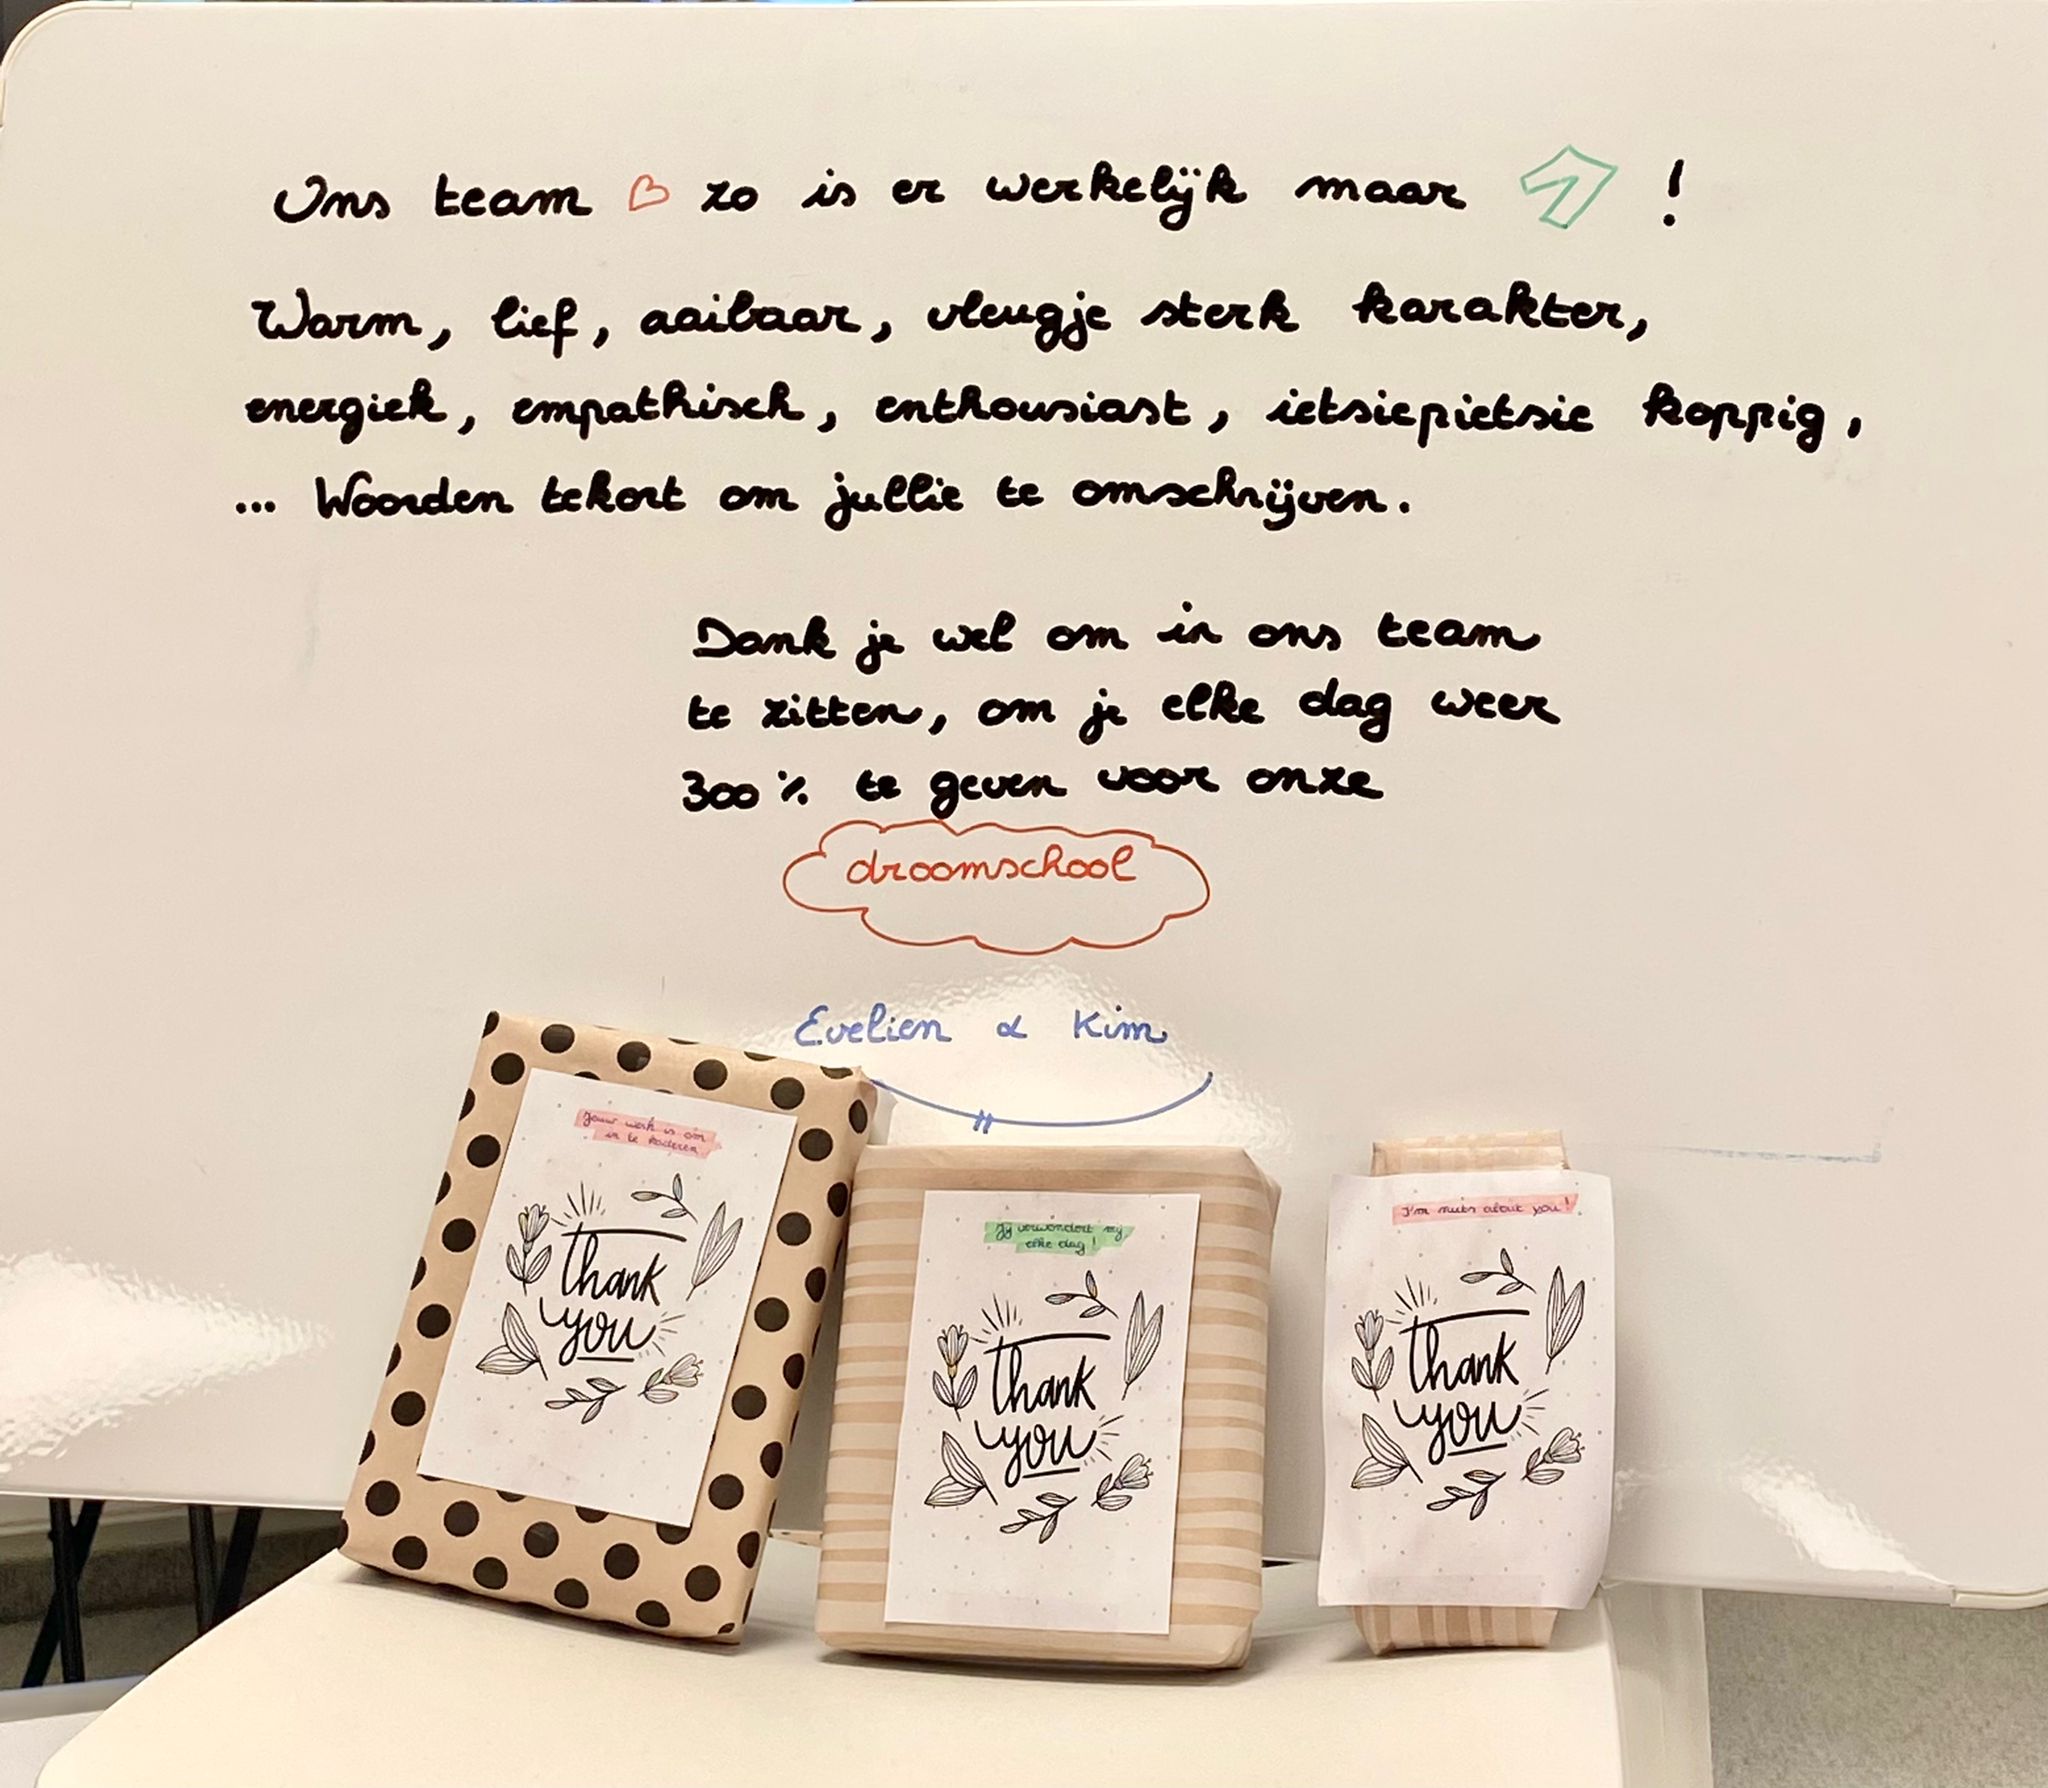 Ons team ♡ zo is er werkelijk maar 1 !
Warm, lief, aaibaar, vleugje sterk karakter,
energiek, empathisch, enthousiast, ietsiepietsie koppig,
... Woorden tekort om jullie te omschrijven.
Dank je wel om in ons team
te zitten, om je elke dag weer
300 % te geven voor onze
droomschool
Evelien & Kim
Jouw werk is om
in te kaderen
thank
you
Jij verwondert mij
elke dag !
thank
you
I'm nuts about you !
thank
you